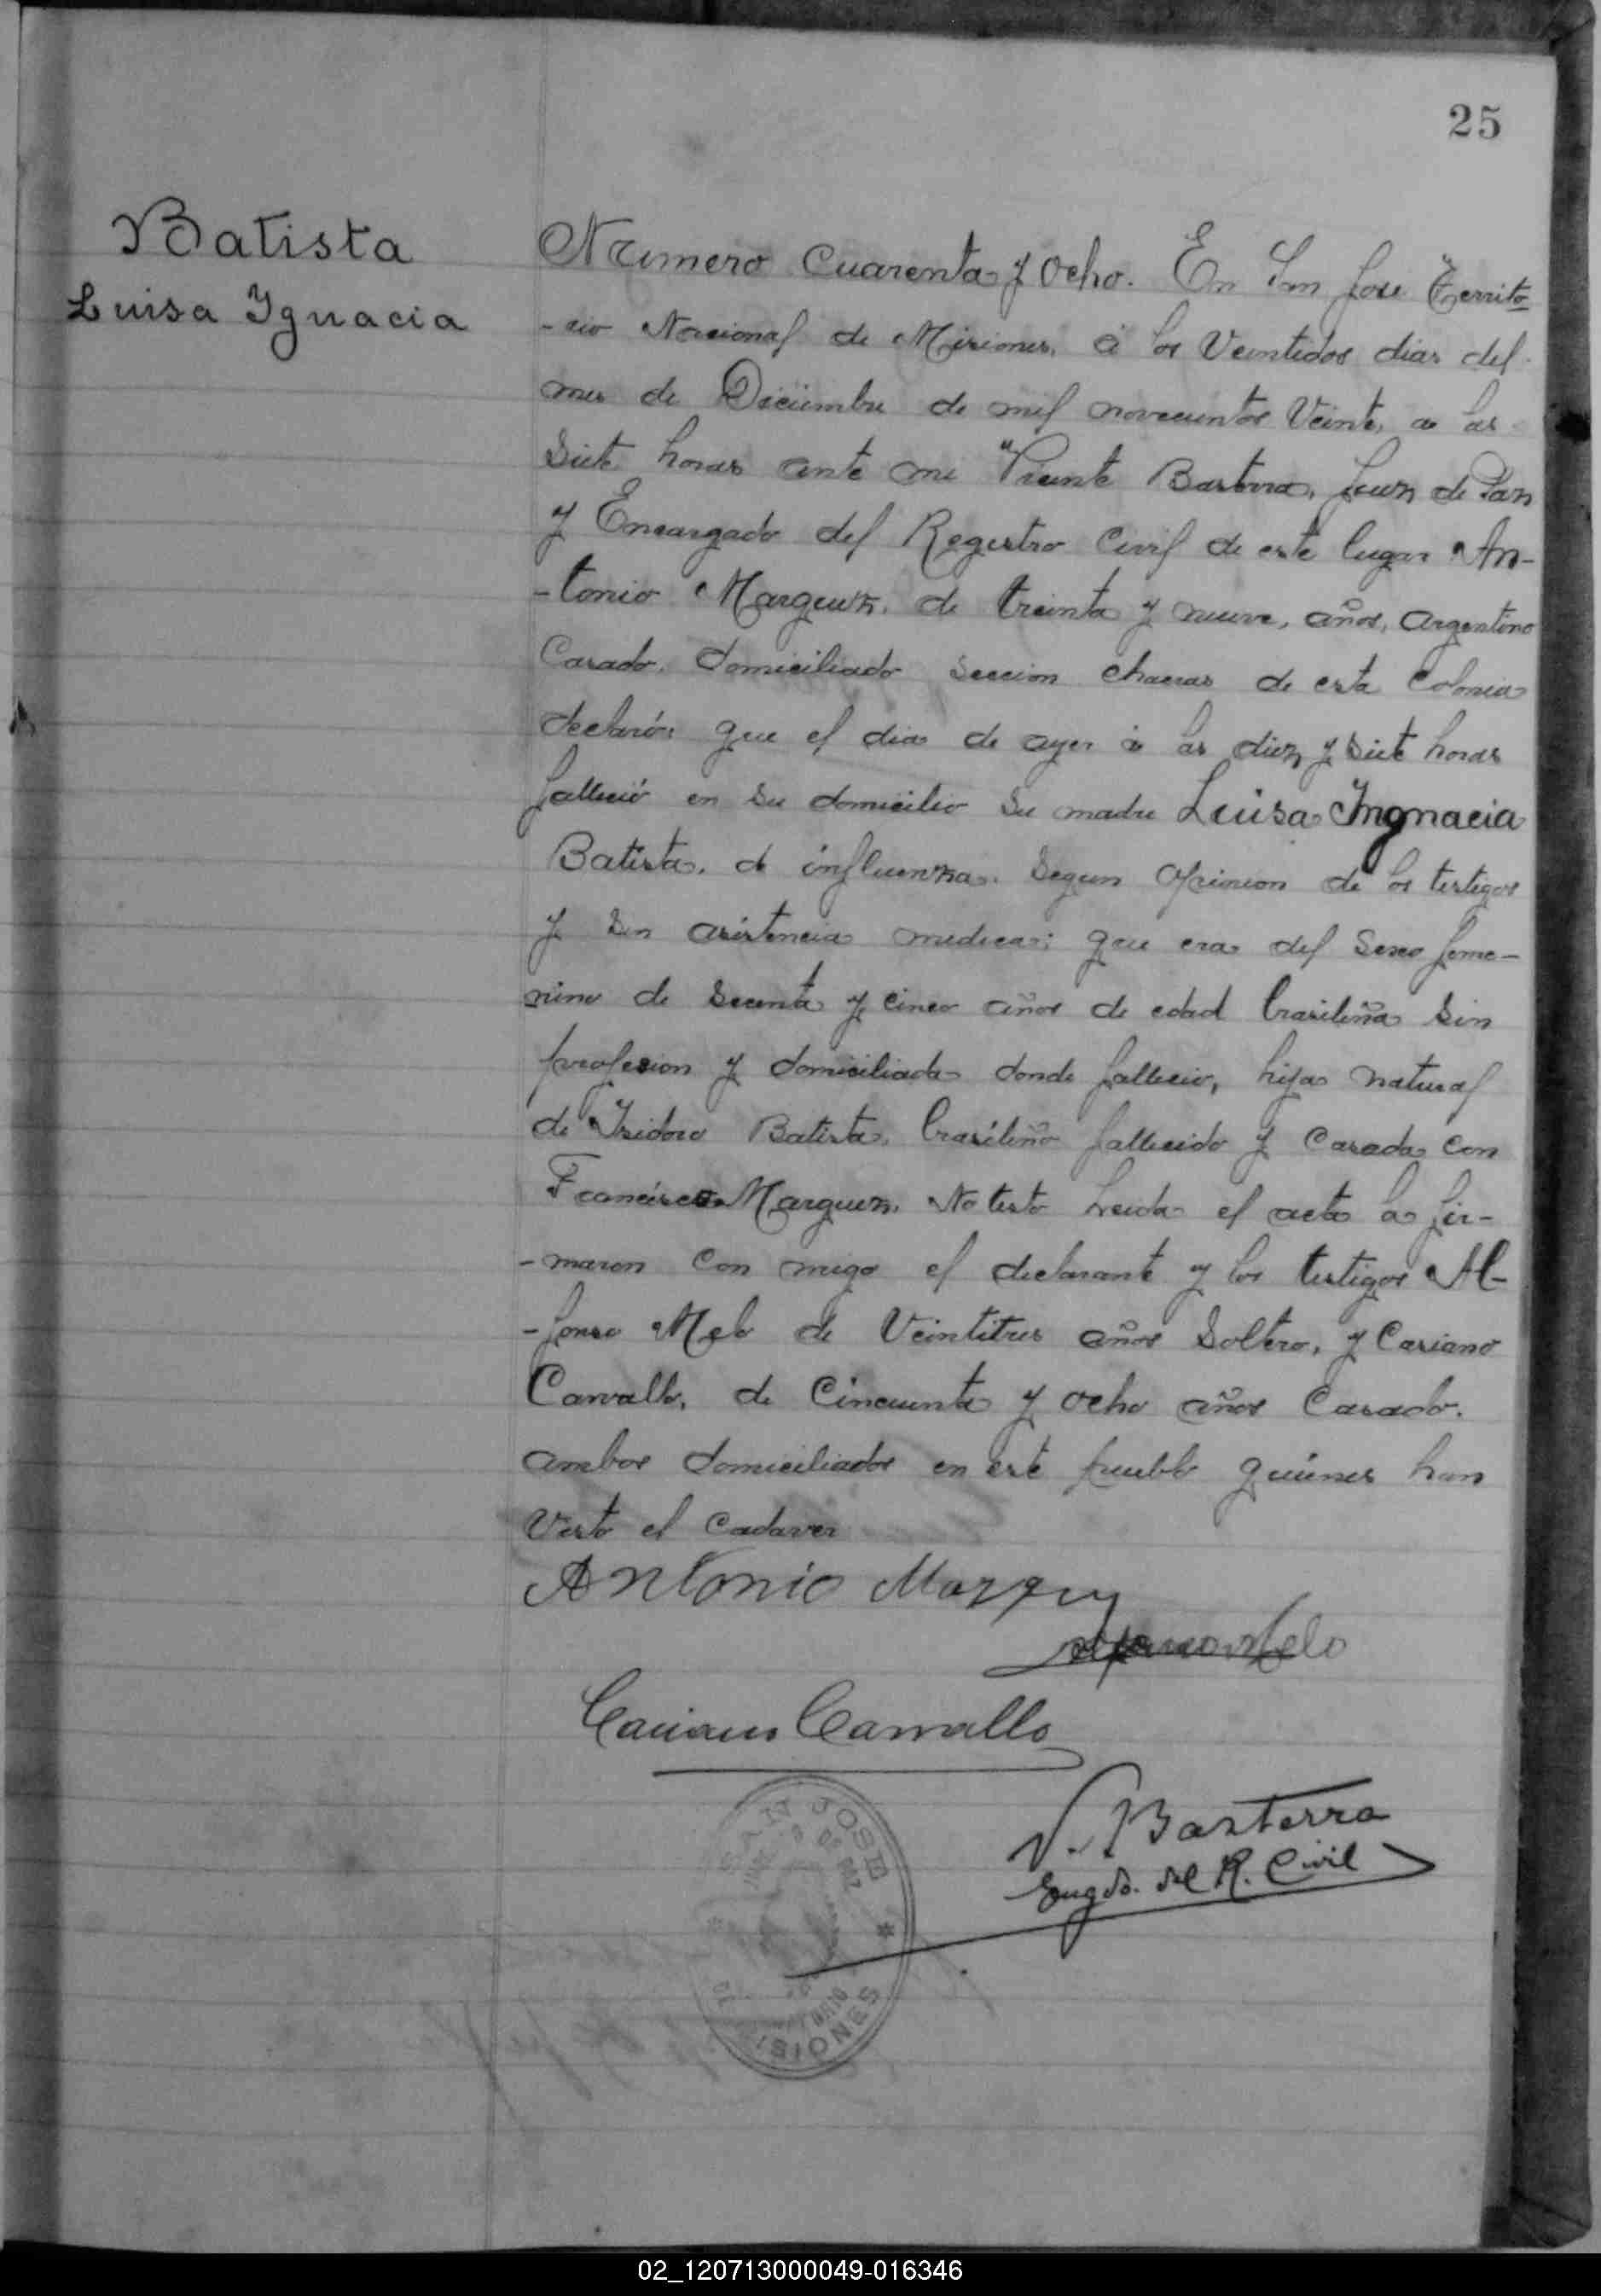 25
Batista
Luisa Ignacia
Numero Cuarenta y Ocho. En San Jose Territo
-rio Nacional de Misiones, á los Veintidos dias del
mes de Diciembre de mil novecientos Veinte, a las
Siete horas ante mi Vicente Basterra, Juez de Paz
y Encargado del Registro Civil de este lugar An-
-tonio Marquez, de treinta y nueve, años, argentino
Casado, domiciliado seccion chacras de esta Colonia
declaró: que el dia de ayer à las diez y siete horas
falleció en su domicilio su madre Luisa Ingnacia
Batista, de influenza. Segun opinion de los testigos
y sin asistencia medica; que era del sexo feme-
nino de y cinco años de edad brasileña sin
profesion y domiciliada donde fallecio, hija natural
de Isidoro Batista, brasileño fallecido y Casada con
Francisco Marquez. No testo Leida el acta la fir-
-maron con migo el declarante y los testigos Al-
-fonso Melo de Veintitres años Soltero, y Casiano
Carvallo, de Cincuenta y ocho años Casado.
ambos domiciliados en este pueblo quienes han
Visto el Cadaver
Antonio Marquez
Alfonso Melo
Casiano Carvallo
SAN JOSE
V. Basterra
Engdo. del R. Civil
MISIONES
02_120713000049-016346